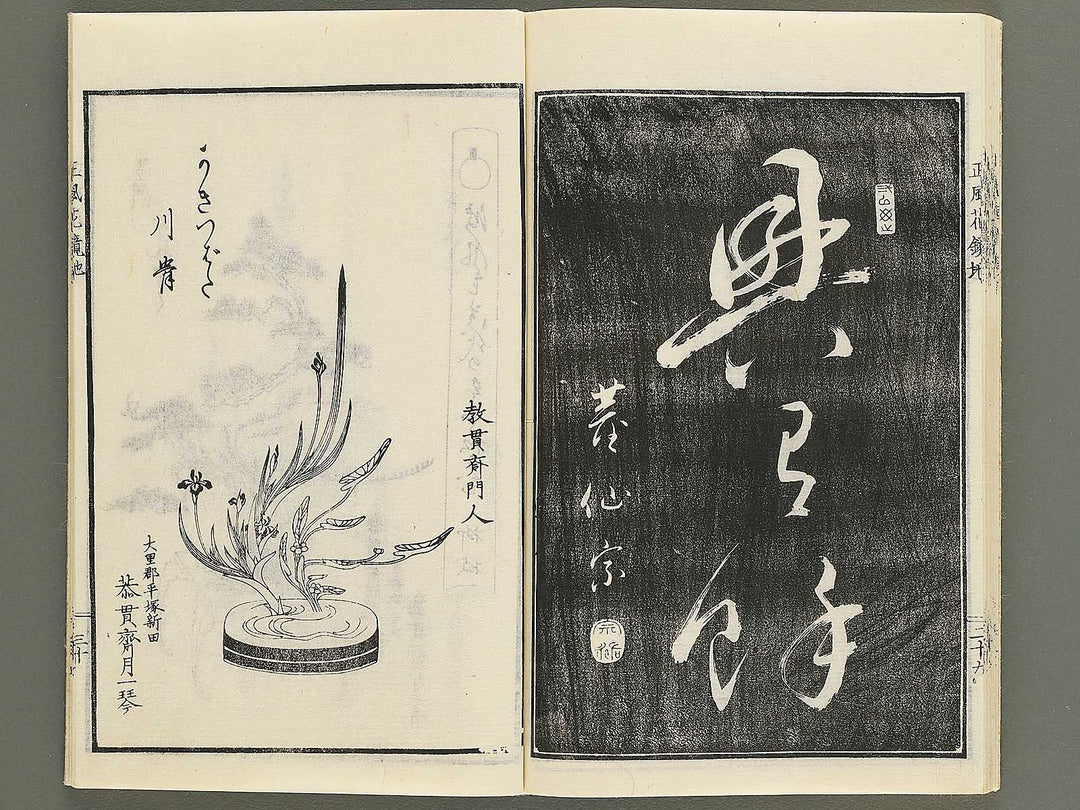 正風花鏡 地
二十九
興有餘
仙宗
教貫斎門人
かきつばた
川骨
大里郡平塚新田
恭貫齋月一琴
正風花鏡 地
三十